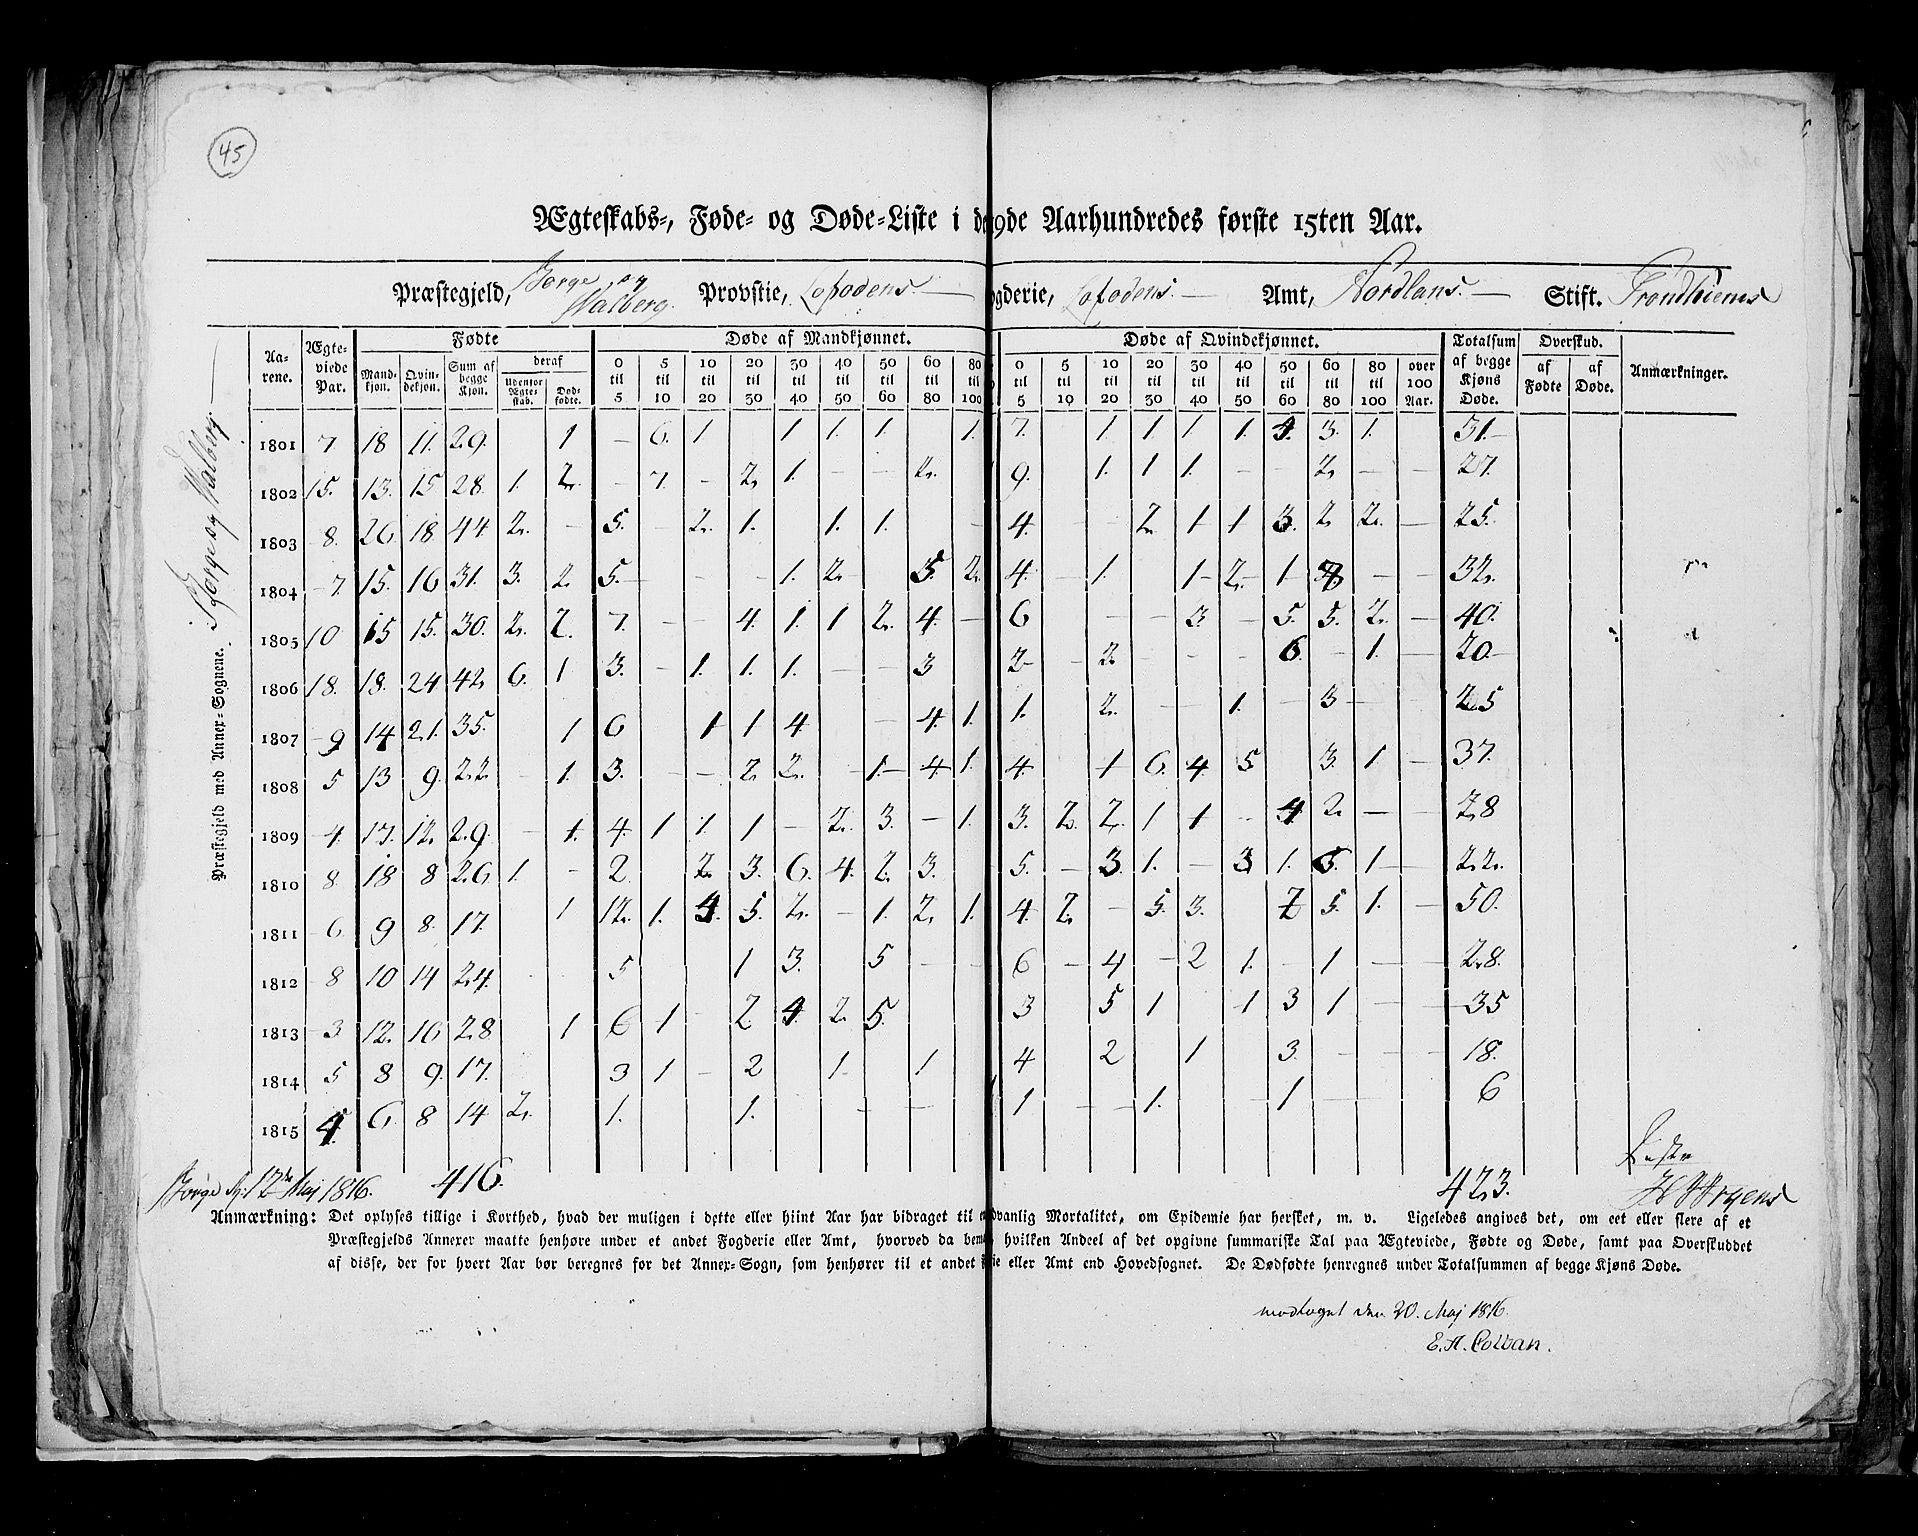 45
Ægteskabs-, Føde- og Døde-Liste i de 9de Aarhundredes første 15ten Aar.
Præstegjeld, Borge og Valberg. Provstie, Lofodens — ogderie, Lofodens. — Amt, Nordlans. — Stift. Trondhiems
Præstegjeld med Annex-Sognene. Borge og Valberg
Aarene. | Ægteviede Par. | Fødte | Døde af Mandkjønnet. | Døde af Qvindekjønnet. | Totalsum af begge Kjøns Døde. | Overskud. | Anmærkninger.
Mandkjøn. | Qvindekjøn. | Sum af begge Kjøn. | deraf Udenfor Ægtestab. | Dødfødte. | 0 til 5 | 5 til 10 | 10 til 20 | 20 til 30 | 30 til 40 | 40 til 50 | 50 til 60 | 60 til 80 | 80 100 | 0 til 5 | 5 til 10 | 10 til 20 | 20 til 30 | 30 til 40 | 40 til 50 | 50 til 60 | 60 til 80 | 80 til 100 | over 100 Aar. | af Fødte | af Døde.
1801 7 18 11. 29. 1 – 6. 1 1 1 1 1. 7. 1 1 1 1. 4. 3. 1. 31.
1802 15. 13. 15 28. 1. 2. – 7. – 2. 1. – – 2. 9. 1. 1 1. – – 2. – – 27.
1803 8. 26. 18. 44 2. – 5. – 2. 1. 1. 1. – 4. – – 2. 1 1 3. 2. 2. – 25.
1804 7. 15. 16 31. 3. 2. 5. – – – 1. 2. 5. 2. 4. – 1. 1 2. 1 – – 32.
1805 10 15 15. 30. 2. 2. 7. – – 4. 1. 1 2. 4. – 6 – – 3. – 5. 5. 2. – 40.
1806 18. 18. 24 42. 6. 1 3. – 1. 1. 1. – – 3 2 – 2. – – – 6. – 1. – 20.
1807 9 14 21. 35. 1 6 1 1 4 – 4. 1. 1. 2. – – 1. – 3 – – 25
1808 5 13 9. 22. – 1. 3. – – 2. 2. – 1. 4 1. 4. 1 6. 4 5 3. 1 – 37.
1809 4. 17. 12. 29. – 1. 4. 1 1. 1 – 2. 3. – 1. 3. 2. 2. 1 1 – 4. 2. – – 28
1810 8. 18 8 26. 1. – 2. 2. 3. 6. 4. 2. 3. 5. – 3. 1. – 3 1. 1 – 22.
1811 6. 9 8. 17. 1 12. 1. 4. 5. 2. – 1. 2. 1. 4. 2. – 5. 3. 7 5. 1. – 50.
1812 8 10 14 24. 5 1 3. 5 – – 6 – 4 – 2 1. – 1 – – 28.
1813 3 12. 16 28. 1 6 1 – 2. 4. 2. 5. 3 5 1 1 3 1 – – 35
1814 5 8 9. 17. 3 1 – 2 1 1 4 2 1 3. – – – 18.
1815 4. 6. 8 14 2. 1. 1. – – 1 – – 1. 1 – – 6
Borge 12te Maj 1816. 416. 423.
Anmærkning: Det oplyses tillige i Korthed, hvad der muligen i dette eller hiint Aar har bidraget til dvanlig Mortalitet, om Epidemie har hersket, m. v. Ligeledes angives det, om eet eller flere af et
Præstegjelds Annexer maatte henhøre under et andet Fogderie eller Amt, hvorved da bem hvilken Andeel af det opgivne summariske Tal paa Ægteviede, Fødte og Døde, samt paa Overskuddet
af disse, der for hvert Aar bør beregnes for det Annex-Sogn, som henhører til et andet ie eller Amt end Hovedsognet. De Dødfødte henregnes under Totalsummen af begge Kjøns Døde.
modtaget den 20. Maj 1816.
E. A. Colban.